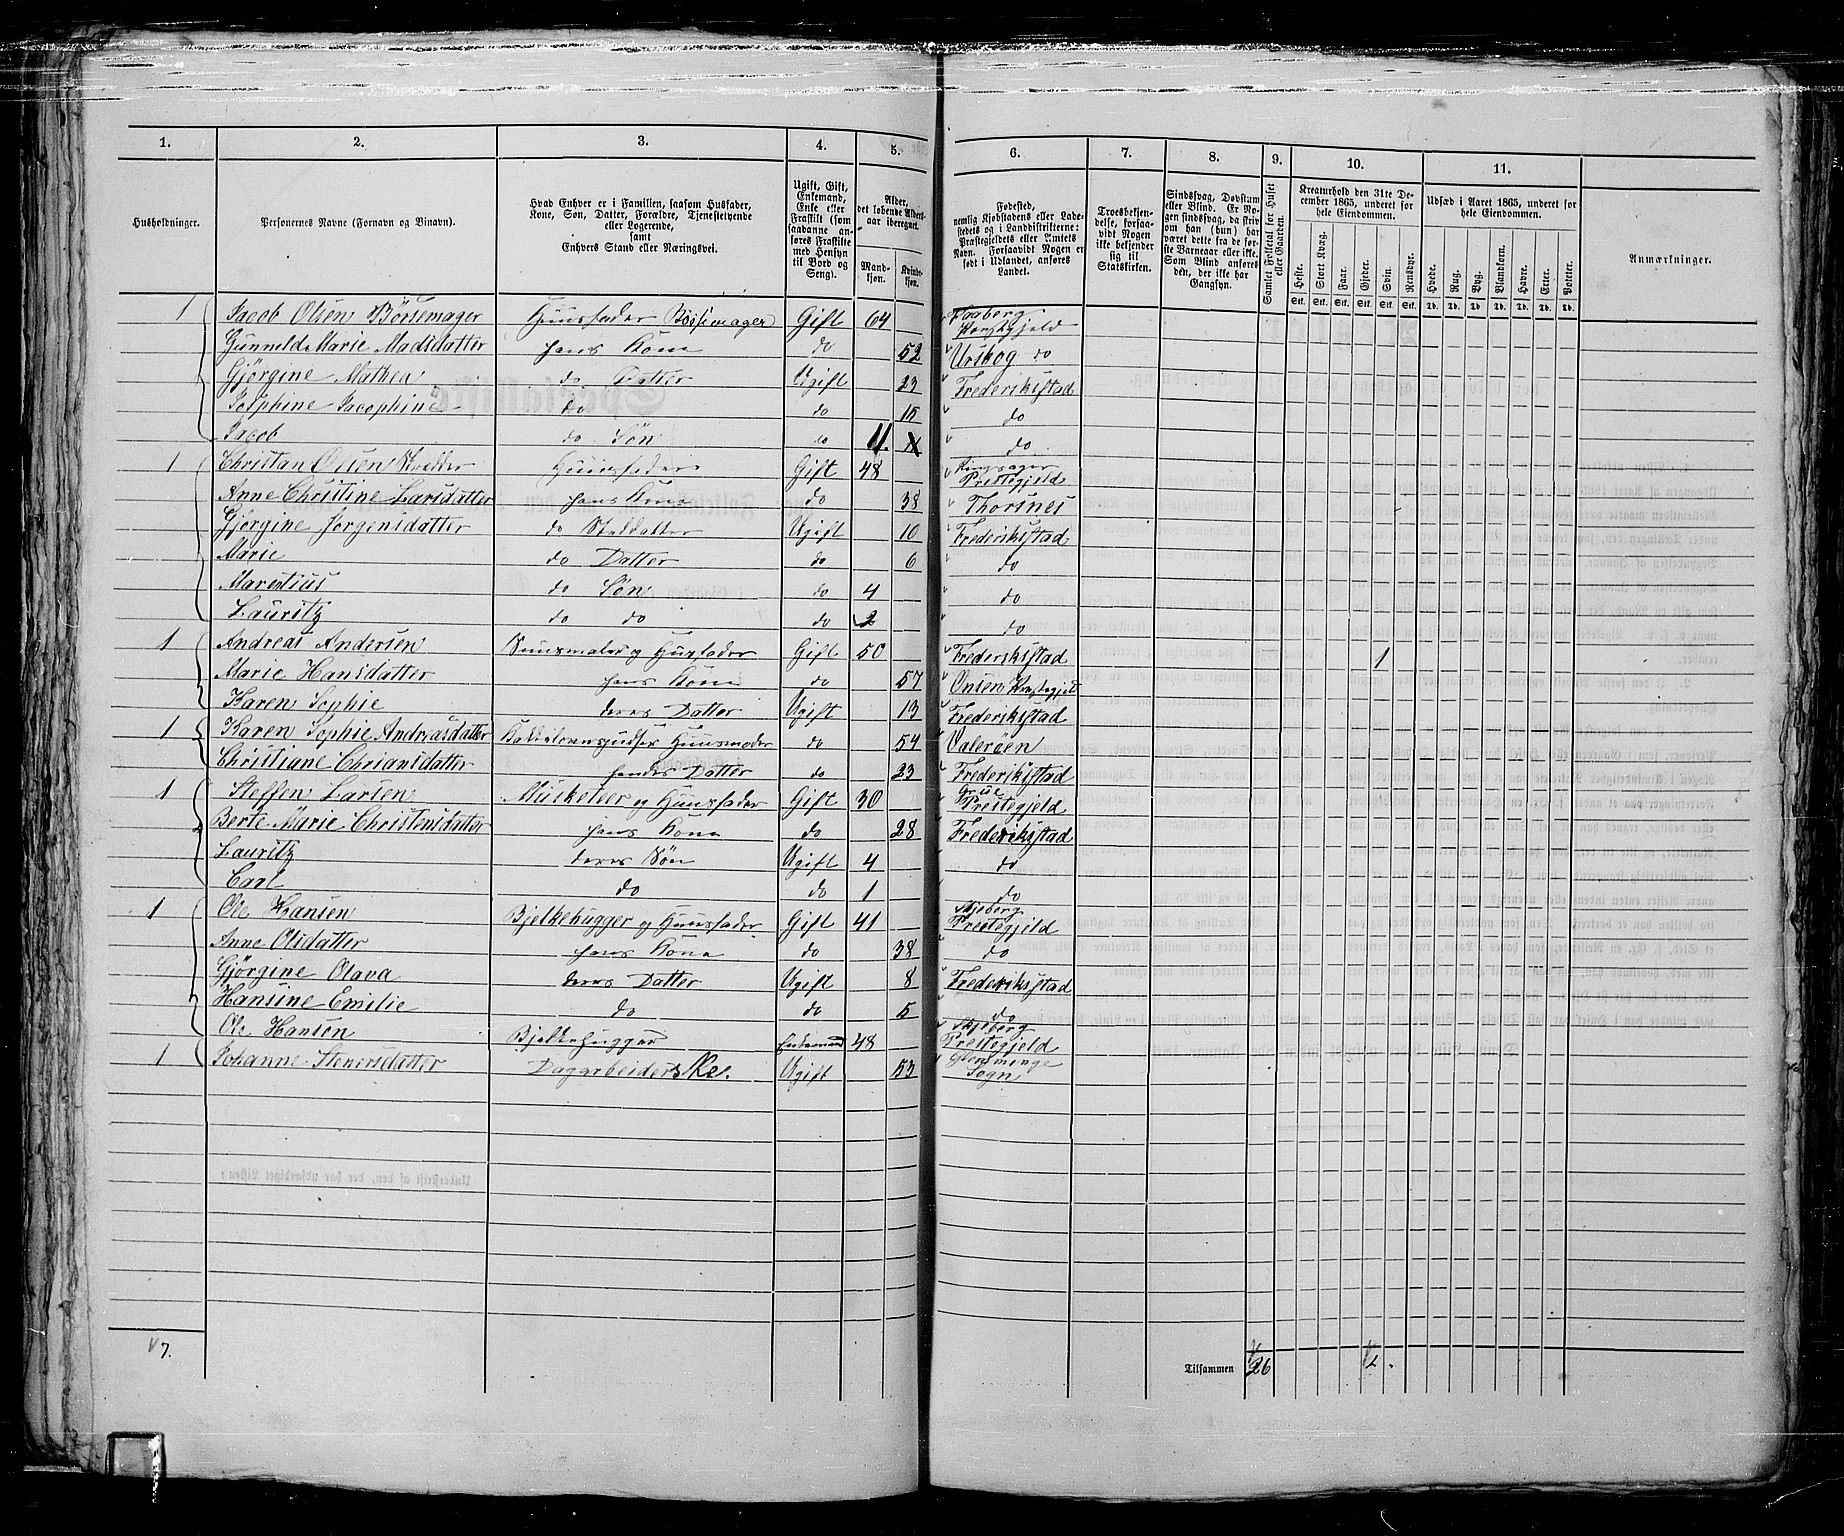 1. 2. 3. 4. 5. 6. 7. 8. 9. 10. 11.
Husholdninger.
Personernes Navne (Fornavn og Binavn).
Hvad Enhver er i Familien, saasom Husfader, Kone, Søn, Datter, Forældre, Tjenestetyende eller Logerende, samt Enhvers Stand eller Næringsvei.
Ugift, Gift, Enkemand, Enke eller Fraskilt (som saadanne anføres Fraskilte med Hensyn til Bord og Seng).
Alder, det løbende Aldersaar iberegnet.
Mandkjøn. Kvindekjøn.
Fødested, nemlig Kjøbstadens eller Ladestedets og i Landdistrikterne: Præstegjeldets eller Amtets Navn. Forsaavidt Nogen er født i Udlandet, anføres Landet.
Troesbekjendelse, forsaavidt Nogen ikke bekjender sig til Statskirken.
Sindssvag, Døvstum eller Blind. Er Nogen sindssvag, da skrives om han (hun) har været dette fra de første Barneaar eller ikke. Som Blind anføres den, der ikke har Gangsyn.
Samlet Folketal for Huset eller Gaarden.
Kreaturhold den 31te December 1865, underet for hele Eiendommen.
Heste. Stort Kvæg. Faar. Gjeder. Svin. Rensdyr.
Stk. Stk. Stk. Stk. Stk. Stk.
Udsæd i Aaret 1865, underet for hele Eiendommen.
Hvede. Rug. Byg. Blandkorn. Havre. Erter. Poteter.
Td. Td. Td. Td. Td. Td. Td.
Anmærkninger.
1 Jacob Olsen Børsemager Huusfader Børsemager Gift 64 Faaberg Præstegjeld
Gunnild Marie Madsdatter hans Kone do 52 Urskog do
Gjørgine Mathea do Datter Ugift 23 Frederikstad
Josephine Jacophine do do 15 do
Jacob do Søn do 11. do
1 Christan Olsen Skrædder Huusfader Gift 48 Ringsager Prestegjeld
Anne Christine Larsdatter hans Kone do 38 Thorsnes
Gjørgine Jørgensdatter do Steddatter Ugift 10 Frederikstad
Marie do Datter do 6 do
Marentius do Søn do 4 do
Lauritz do do do 2 do
1 Andreas Andersen Huusmaler og Husfader Gift 50 Frederikstad 1
Marie Hansdatter hans Kone do 57 Onsøn Prestegjeld
Karen Sophie deres Datter Ugift 13 Frederikstad
1 Karen Sophie Andreasdatter Huusmoder do 54 Valerøen
Christiane Chriansdatter hendes Datter do 23 Frederikstad
1 Steffen Larsen Musketeer og Huusfader Gift 30 Grue Prestegjeld
Berte Marie Christensdatter hans Kone do 28 Frederikstad
Lauritz deres Søn Ugift 4 do
Carl do do 1 do
1 Ole Hansen Bjelkehugger og Huusfader Gift 41 Skjeberg Prestegjeld
Anne Olsdatter hans Kone do 38 do
Gjørgine Olava deres Datter Ugift 8 Frederikstad
Hansine Emilie do do 5 do
Ole Hansen Bjelkehugger Enkemand 48 Skjeberg Prestegjeld
1 Johanne Stenersdatter Dagarbeiderske. Ugift 53 Glemminge Sogn
7.
Tilsammen 26